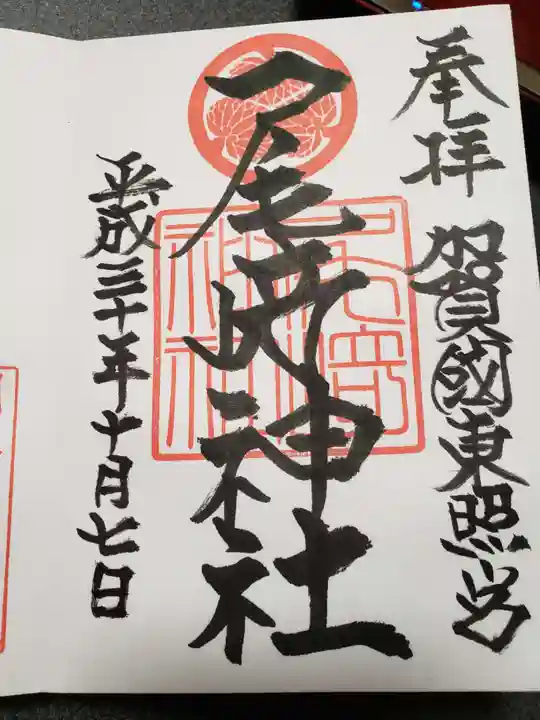 奉拝
賀國東照宮
尾﨑神社
平成三十年十月七日
尾崎神社